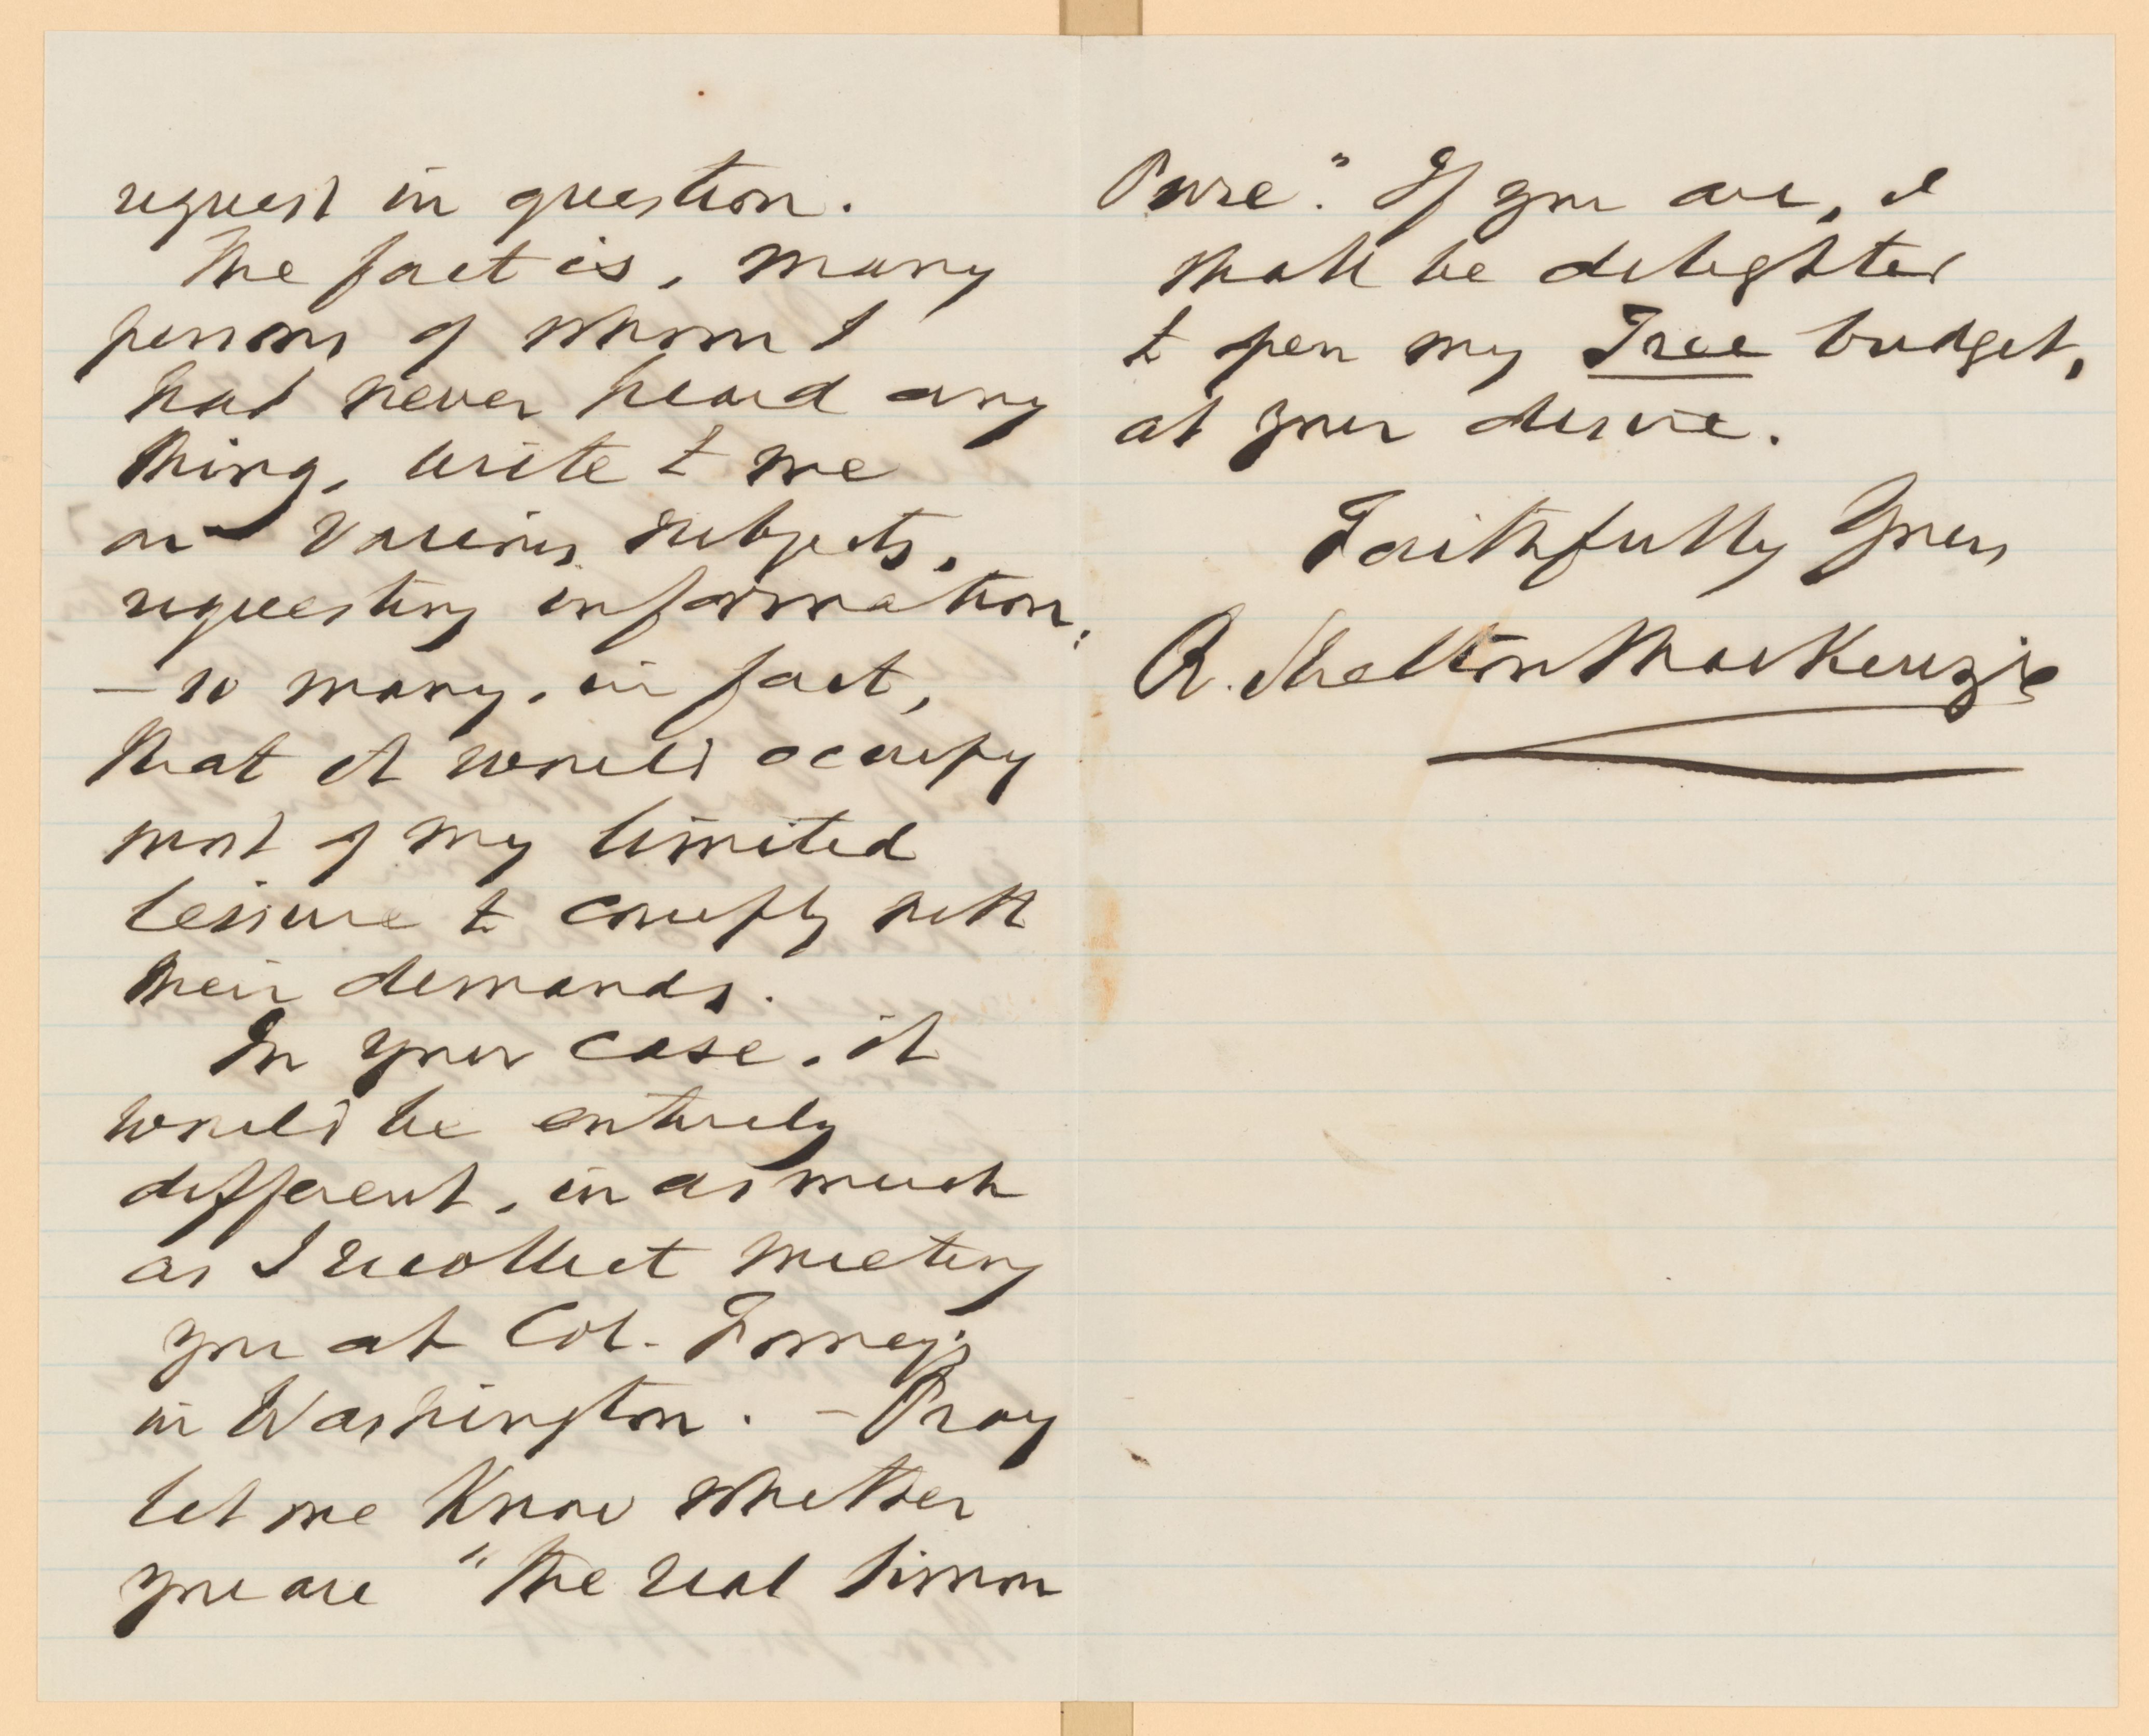 request in question.
The fact is, many
persons of whom I
had never heard any
thing, write to me
on various subjects,
requesting information;
— so many, in fact,
that it would occupy
most of my limited
leisure to comply with
their demands.
In your case, it
would be entirely
different, in as much
as I recollect meeting
you at Col. Forney's
in Washington. — Pray
let me know whether
you are "the real Simon
Pure". If you are, I
shall be delighted
to open my Tree budget,
at your desire.
Faithfully Yours
R. Shelton MacKenzie